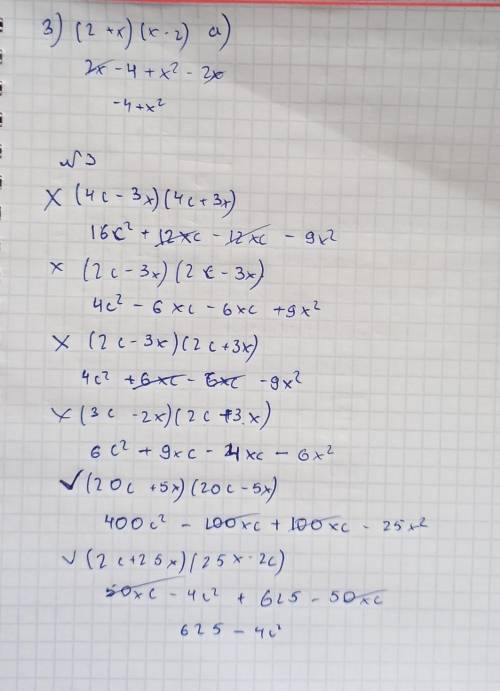 3) (2+x)(x-2) a)
2x - 4 + x² - 2x
-4+x²
№3
x (4c - 3x)(4c + 3x)
16c² + 12xc - 12xc - 9x²
x (2c - 3x)(2c - 3x)
4c² - 6xc - 6xc + 9x²
x (2c - 3x)(2c + 3x)
4c² + 6xc - 6xc - 9x²
x (3c - 2x)(2c + 3x)
6c² + 9xc - 4xc - 6x²
✓ (20c + 5x)(20c - 5x)
400c² - 100xc + 100xc - 25x²
✓ (2c + 25x)(25x - 2c)
50xc - 4c² + 625 - 50xc
625 - 4c²